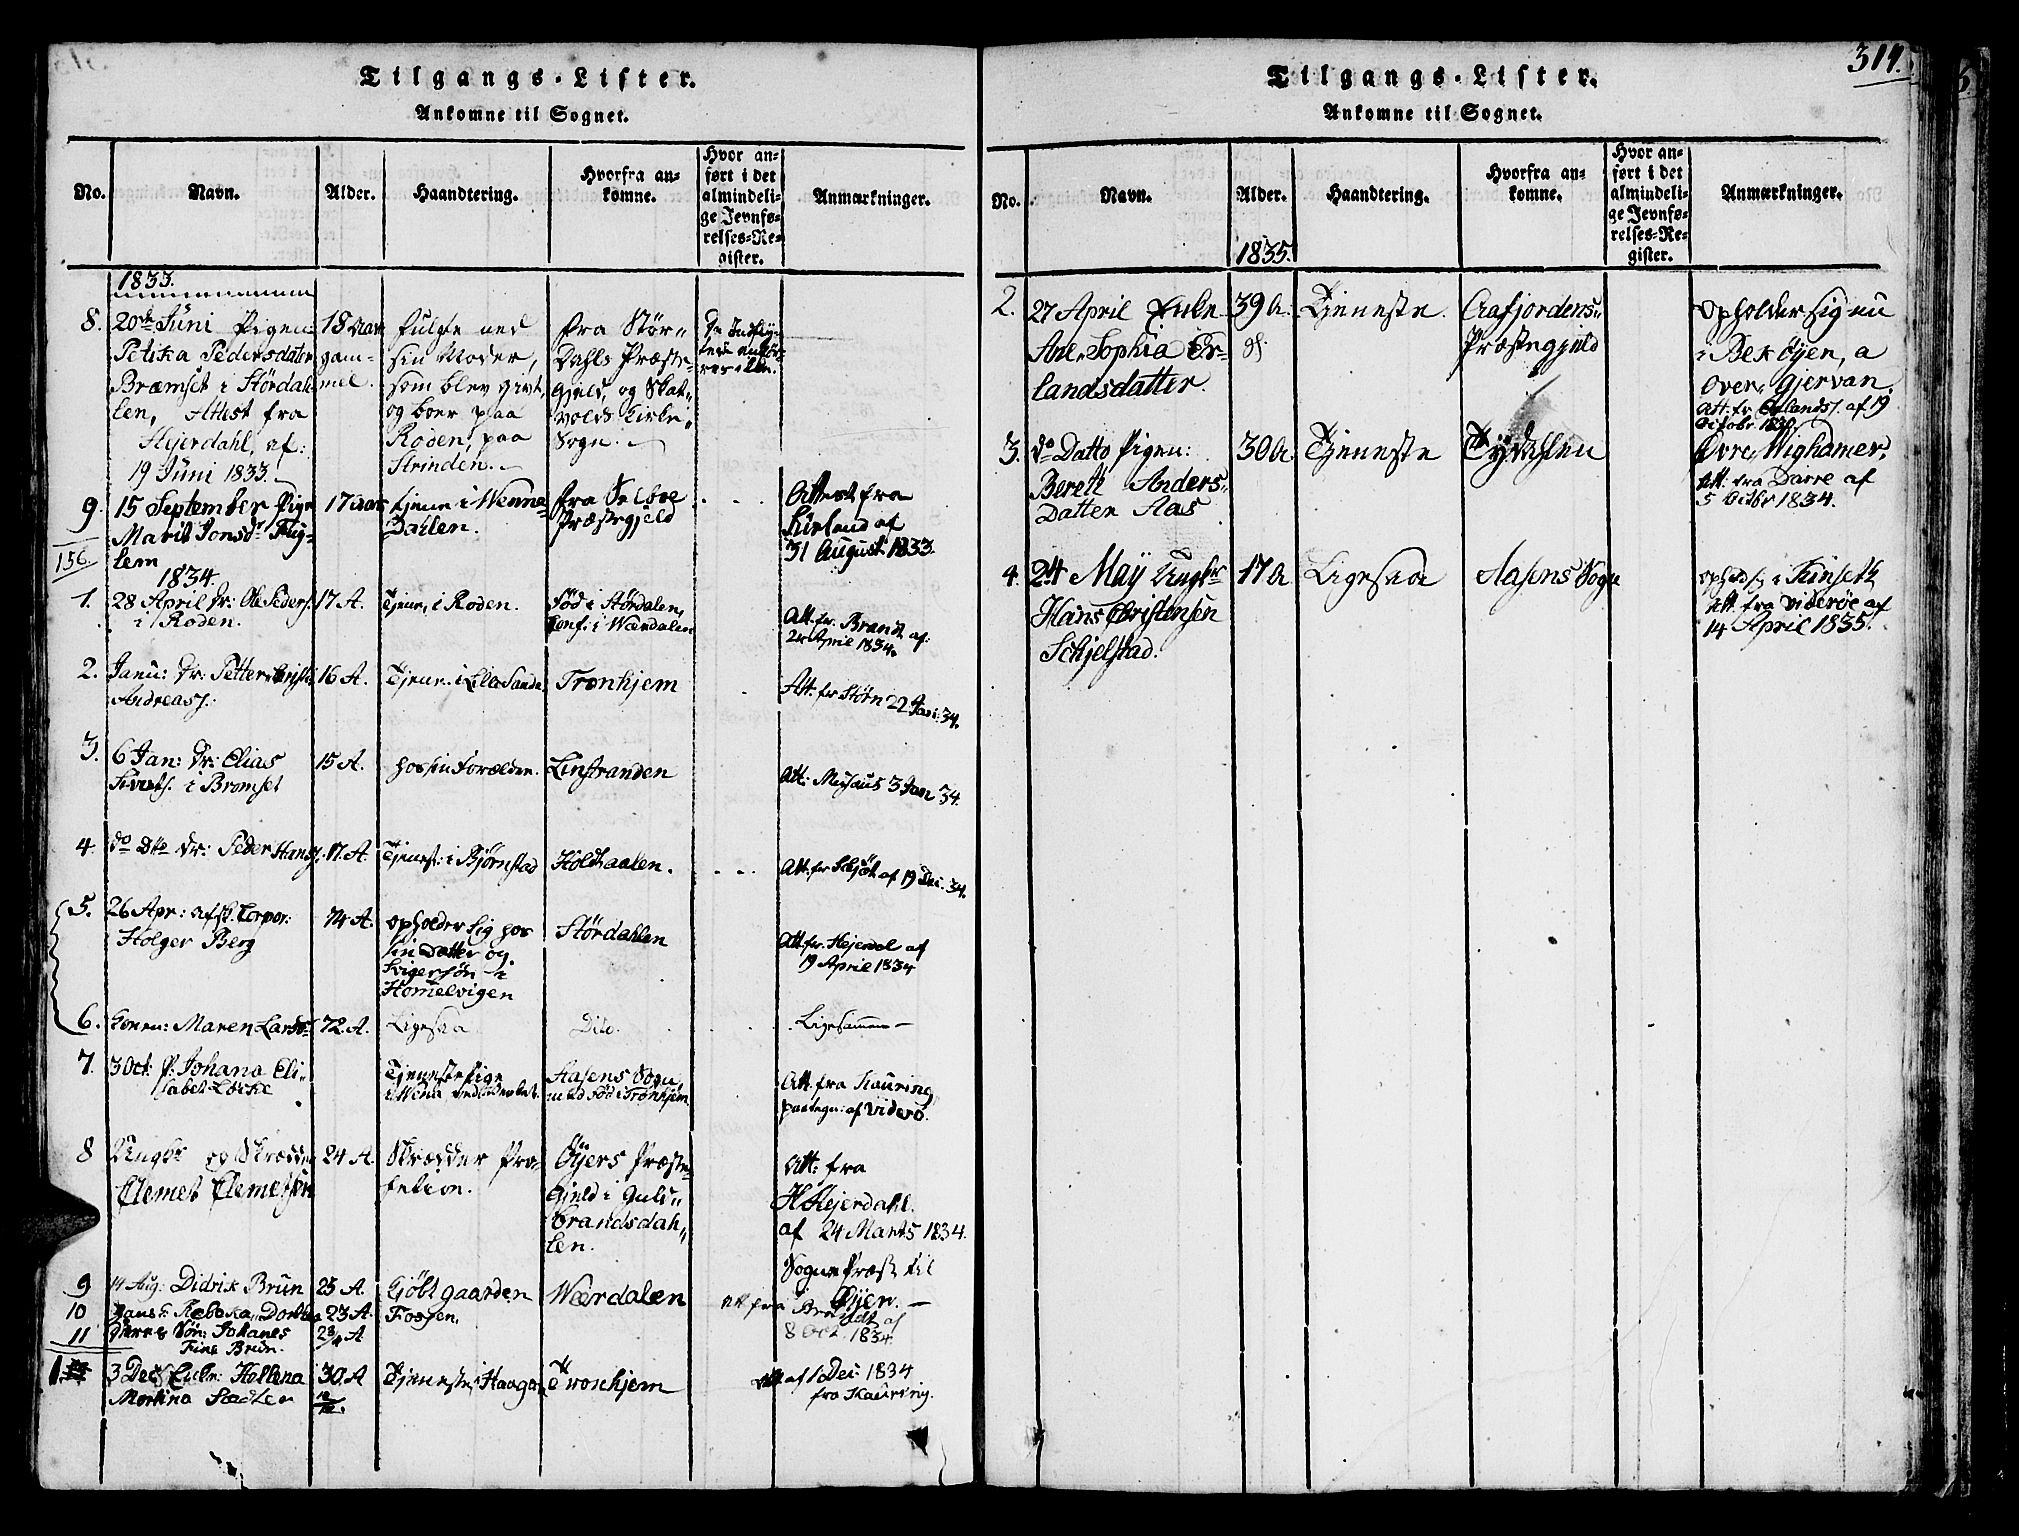 Tilgangs-Lister.
Ankomne til Sognet.
No.
Navn.
Alder.
Haandtering.
Hvorfra an-
komne.
Hvor an-
ført i det
almindeli-
ge Jevnfø-
relses-Re-
gister.
Anmærkninger.
1833.
8.
20de Juni Pigen
Petrika Pedersdater
Bræmset i Størdah
len, Attest fra
Hejerdahl, af:
19 Juni 1833.
18 Aar
gam-
mel.
fulgte med
sin Moder,
som blev givt,
og boer paa
Roden, paa
Strinden.
fra Stør-
Dahls Præste-
gjeld, og Skat-
volds Kirke-
Sogn.
9
15 September Pige
Marit Jonsdr Flug-
lem
17 aar
tjene i Wenna
Dahlen.
fra Selboe
Præstegjeld
Attest fra
Kirlend af
31 August 1833.
156.
1834.
1.
28 April Dr: Ole Peders.
i Roden.
17 A.
Tjene, i Roden.
Fød i Størdalen,
Conf. i Wærdalen
Att. fr. Brandt af:
24 April 1834.
2.
Janu: Dr: Petter Christi
Andreass.
16 A.
Tjene. i Lille Sande
Tronhjem
Att. fr Størn 22 Jan: 34.
3.
6 Jan: Dr: Elias
Siverts. i Bromset
15 A.
hos sin Forælder.
Leinstranden
Att: Musaus 3 Jan 34.
4.
do Dto Dr: Peder Hans.
17. A.
Tjenest: i Bjørnstad
Holdtaalen.
Att. fr Schjøt af 19 Dec. 34.
5.
26 Apr: afsk. Corpor:
Holger Berg
74 A.
opholder sig hos
sin Datter og
Svigersøn i
Homelvigen
Størdahlen
Att. fr. Hejerdl af
19 April 1834
6.
Konen: Maren Larsdr
72 A.
Ligesaa
Dito.
Ligesammen
7.
3 Oct: P: Johana Eli-
sabet Löcke
Tjenestepige
Aasens Sogn
med Fød i Tronhjem
Att. fra Kauring
paategn: af Viderø.
8
Ungkr og Skredder
Clemet Clemetsen
24 A.
Skredder Pro-
fession.
Öyers Præste-
Gjeld i Guld-
brandsdah-
len.
Att: fra
H Hejerdahl.
af 24 Marts 1834.
Sogne Præst til
Øyer.
9
14 Aug: Didrik Brun
25 A.
Kjöbt gaarden
Fossen.
Wærdalen
Att fra Brandt af
8 Oct. 1834.
10
Hans: Rebeka Dorthea
23 A.
11
Deres Søn: Johanes
Fine Brun.
2 3/4 A
1
3 Dec Enke: Hellena
Martina Stadter
30 A
Tjeneste, i Haagen
Tronhjem
Att af 1 Dec: 1834
fra Kauring.
314.
Tilgangs-Lister.
Ankomne til Sognet.
No.
Navn.
Alder.
Haandtering.
Hvorfra an-
komne.
Hvor an-
ført i det
almindeli-
ge Jevnfø-
relses-Re-
gister.
Anmærkninger.
1835.
2.
27 April Enke
Ane Sophia Er-
landsdatter.
39 A.
Tjeneste.
Aafjordens
Præstegjeld
opholder sig nu
i Bekøjen, a
over, Gjervan.
Att: fr. Erlands. af 19
October 1830
3.
do Datto Pigen:
Berete Anders
Datter Aas
30 A
Tjeneste
Tydahlen
Øvre Wighamer,
Att: fra Darre af
5 Octbr 1834.
4.
24 May Ungkr
Hans Christensen
Schjelstad.
17 A
Ligesaa
Aasens Sogn
opholds. i Tunseth
Att. fra Viderøe af
14 April 1835.